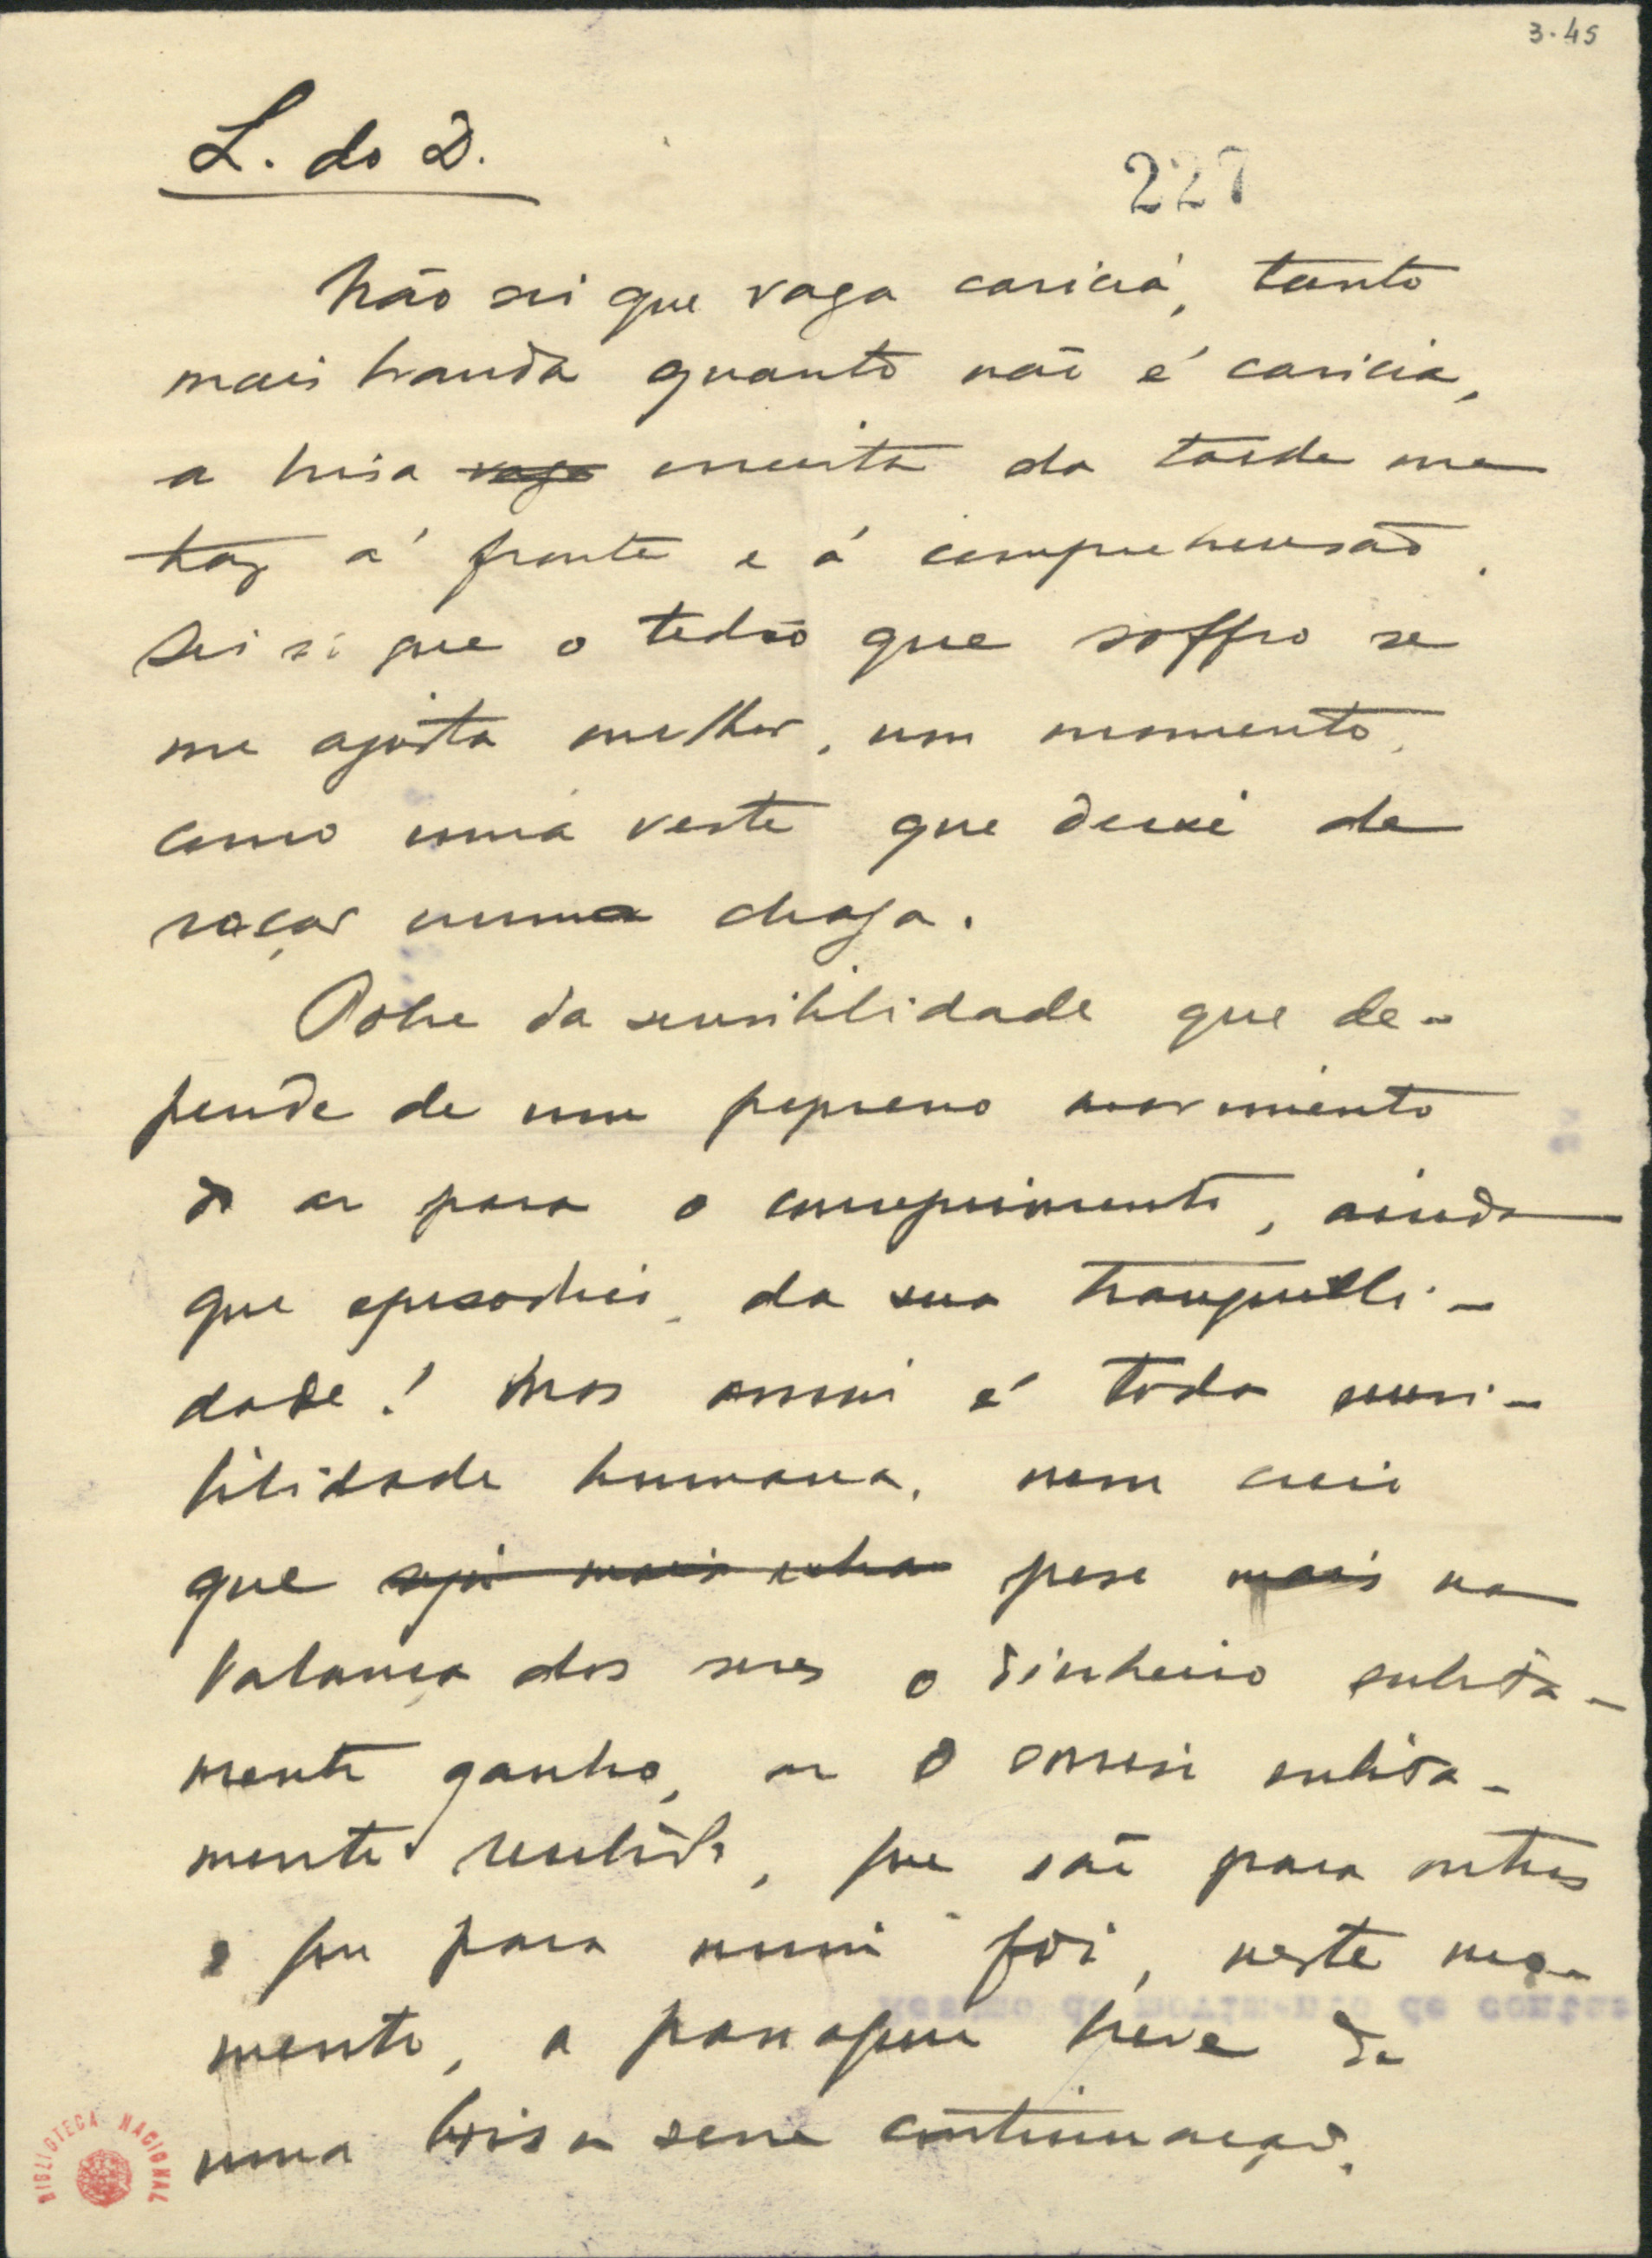 3-45
L. do D.
227
Não sei que vaga caricia, tanto
mais branda quanto não é caricia,
a brisa vaga incerta da tarde me
traz á fronte e á comprehensão.
Sei só que o tedio que soffro se
me ajusta melhor, um momento,
como uma veste que deixe de
roçar numa chaga.
Pobre da sensibilidade que de-
pende de um pequeno movimento
do ar para o conseguimento, ainda
que episodico, da sua tranquilli-
dade! Mas assim é toda sensi-
bilidade humana, nem creio
que seja mais pese mais na
balança dos seres o dinheiro subita-
mente ganho, ou o sorriso subita-
mente recebido, que são para outros
o que para mim foi, neste mo-
mento, a passagem breve de
uma brisa sem continuação.
BIBLIOTECA NACIONAL